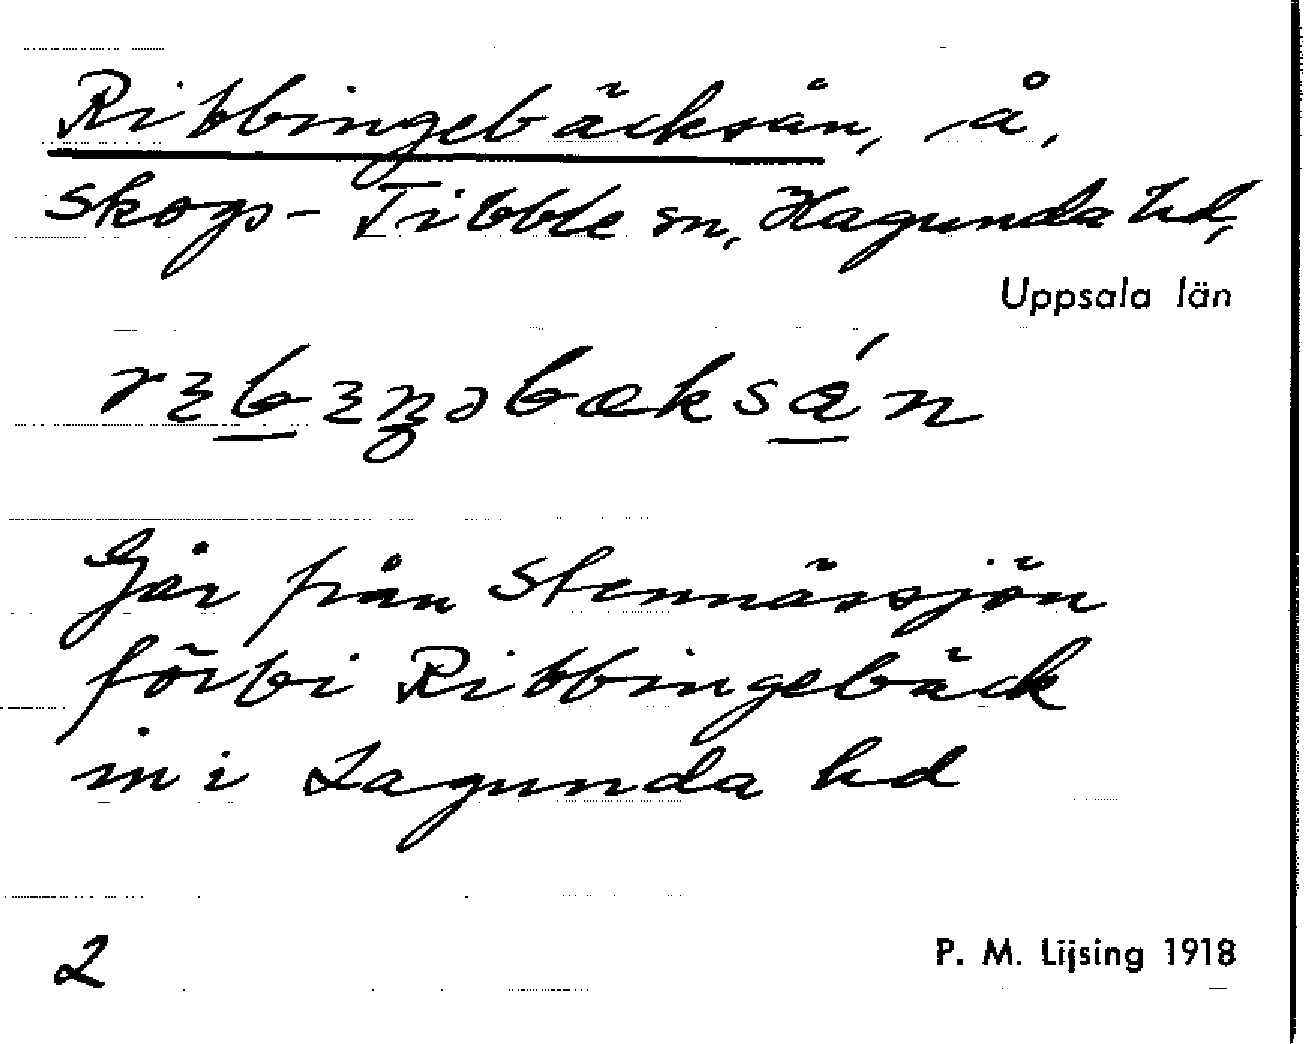 Ribbingebäcksån, å,
Skogs-Tibble sn, Hagunda hd,
Uppsala län
Går från Stennässjön
förbi Ribbingebäck
in i Lagunda hd
2
P. M. Lijsing 1918